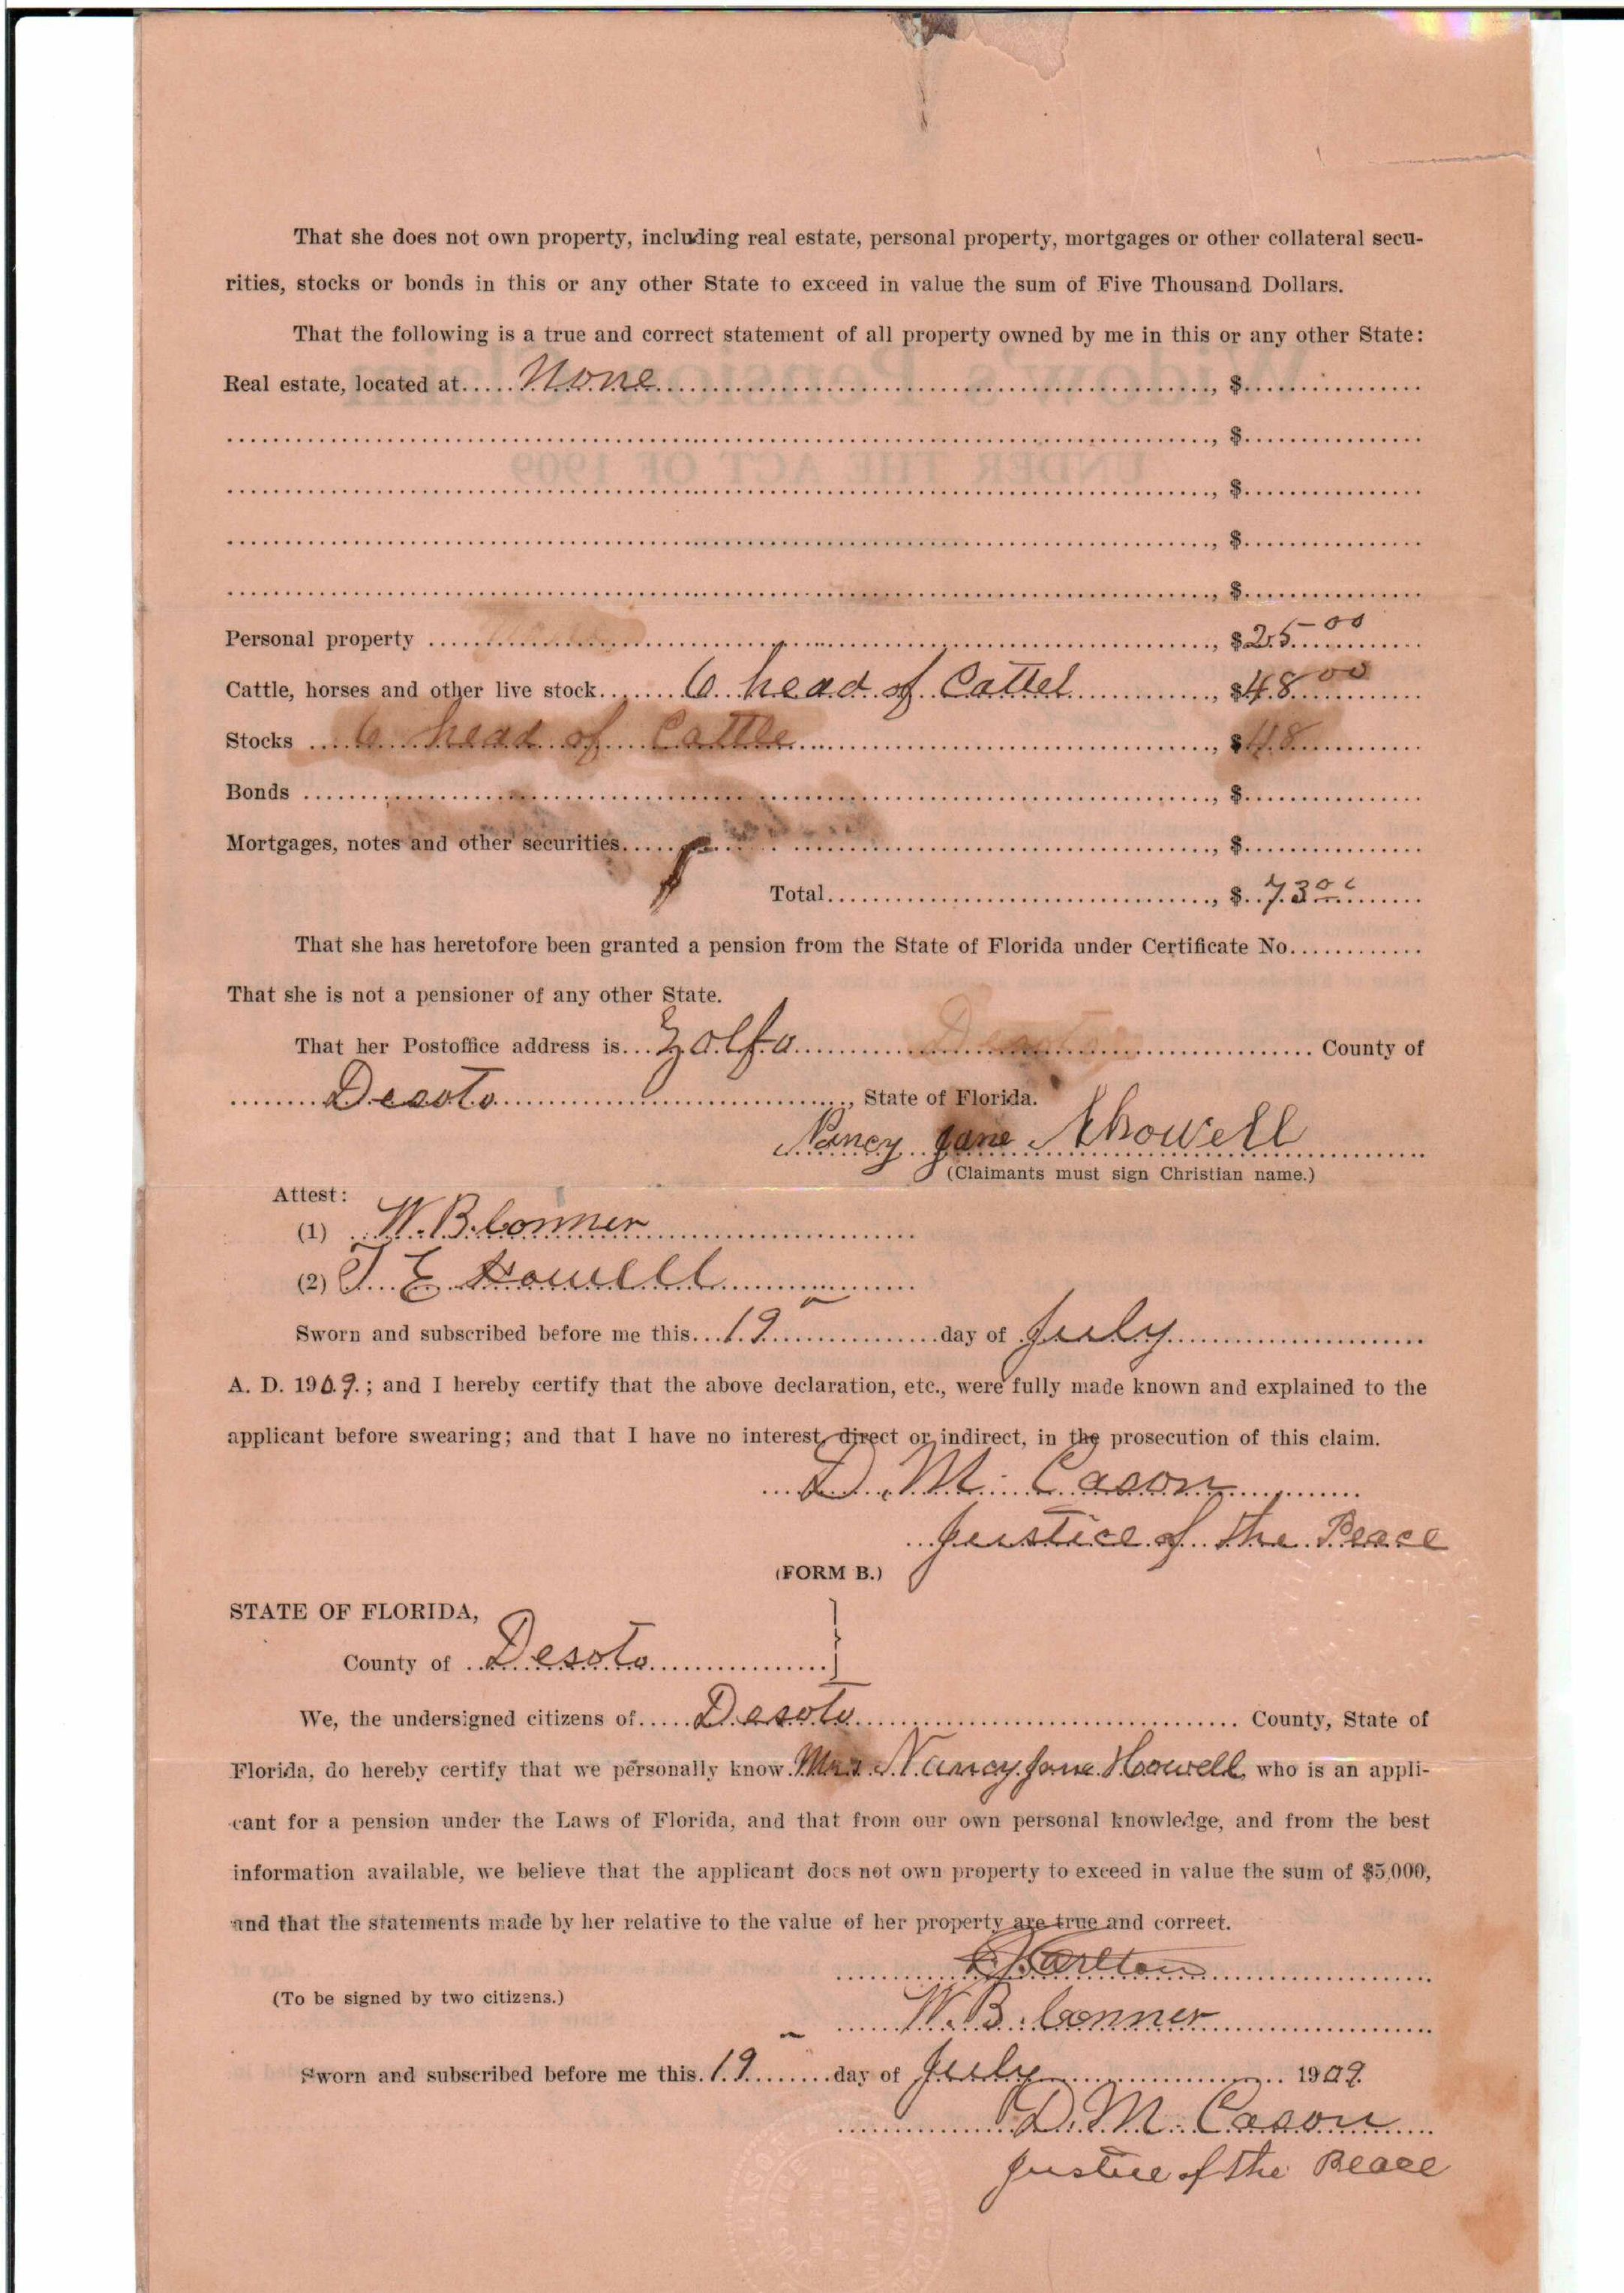 That she does not own property, including real estate, personal property, mortgages or other collateral secu-
rities, stocks or bonds in this or any other State to exceed in value the sum of Five Thousand Dollars.
That the following is a true and correct statement of all property owned by me in this or any other State:
Real estate, located at..... None ....., $.....
....., $.....
....., $.....
....., $.....
....., $.....
Personal property ....., $25.00
Cattle, horses and other live stock..... 6 head of Cattel ....., $48.00
Stocks .... 6 head of Cattle ....., $48
Bonds ....., $.....
Mortgages, notes and other securities....., $.....
Total....., $ 73.00
That she has heretofore been granted a pension from the State of Florida under Certificate No.....
That she is not a pensioner of any other State.
That her Postoffice address is... Zolfo ..... Desoto ..... County of
..... Desoto ....., State of Florida.
Nancy Jane Howell
(Claimants must sign Christian name.)
Attest:
(1) W. B. Conner
(2) T E Howell
Sworn and subscribed before me this... 19 ..... day of July
A. D. 1909.; and I hereby certify that the above declaration, etc., were fully made known and explained to the
applicant before swearing; and that I have no interest, direct or indirect, in the prosecution of this claim.
D. M. Cason
Justice of the Peace
(FORM B.)
STATE OF FLORIDA,
County of Desoto
We, the undersigned citizens of..... Desoto ..... County, State of
Florida, do hereby certify that we personally know Mrs. Nancy Jane Howell, who is an appli-
cant for a pension under the Laws of Florida, and that from our own personal knowledge, and from the best
information available, we believe that the applicant does not own property to exceed in value the sum of $5,000,
and that the statements made by her relative to the value of her property are true and correct.
Carlton
(To be signed by two citizens.)
W. B. Conner
Sworn and subscribed before me this. 19 ..... day of July ..... 1909.
D. M. Cason
Justice of the Peace